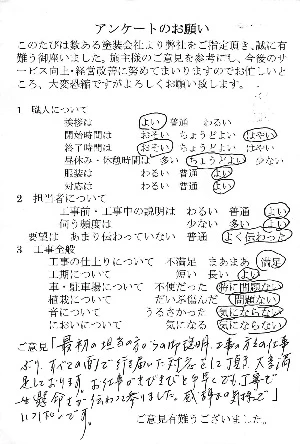 アンケートのお願い
このたびは数ある塗装会社より弊社をご指定頂き、誠に有
難う御座いました。施主様のご意見を参考にし、今後のサ
ービス向上・経営改善に努めてまいりますのでお忙しいとこ
ろ、大変恐縮ですがよろしくお願い致します。
1 職人について
挨拶は よい 普通 わるい
開始時間は おそい ちょうどよい はやい
終了時間は おそい ちょうどよい はやい
昼休み・休憩時間は 多い ちょうどよい 少ない
服装は わるい 普通 よい
対応は わるい 普通 よい
2 担当者について
工事前・工事中の説明は わるい 普通 よい
伺う頻度は 少ない 多い よい
要望は あまり伝わっていない 普通 よく伝わった
3 工事全般
工事の仕上りについて 不満足 まあまあ 満足
工期について 短い 長い よい
車・駐車場について 不便だった 特に問題ない
植栽について だいぶ傷んだ 問題ない
音について うるさかった 気にならない
においについて 気になる 気にならない
ご意見「最初の担当の方からの御説明、工事の方の仕事
ぶり、すべての面で行き届いた対応をして頂き、大変満
足しております。お仕事がきびきびと
一生懸命さが伝わって参りました。
ご意見有難うございました。